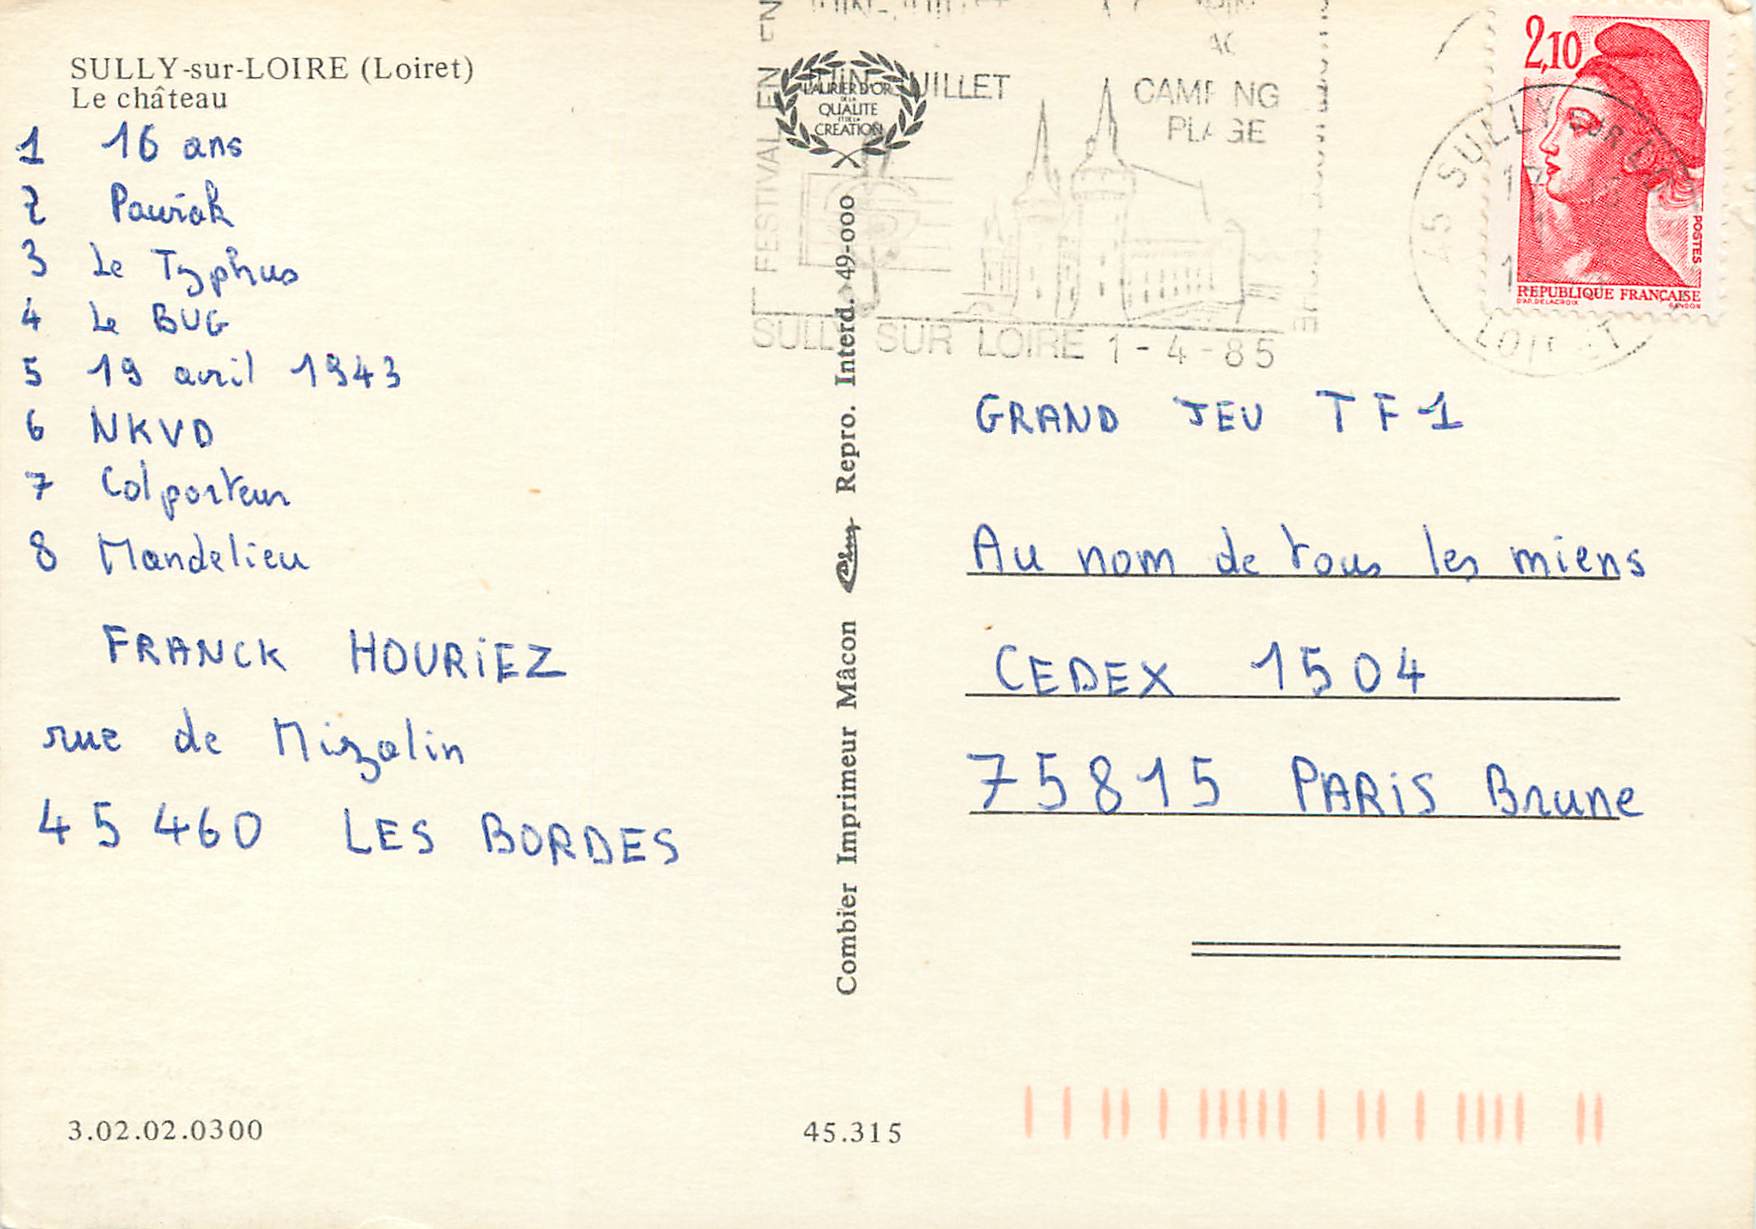 SULLY-sur-LOIRE (Loiret)
Le château
1 16 ans
2 Pawiak
3 Le Typhus
4 Le BUG
5 19 avril 1943
6 NKVD
7 Colporteur
8 Mandelieu
FRANCK HOURIEZ
rue de Mizalin
45 460 LES BORDES
3.02.02.0300
45.315
Combier Imprimeur Mâcon Repro. Interd. 49-000
LAURIER D'OR
DE LA
QUALITE
ET DE LA
CREATION
FESTIVAL EN
JUIN JUILLET
CAMPING
PLAGE
SULLY SUR LOIRE 1-4-85
45 SULLY SUR
LOIRET
2,10
POSTES
REPUBLIQUE FRANÇAISE
D'AP. DELACROIX GANDON
GRAND JEU TF1
Au nom de tous les miens
CEDEX 1504
75815 PARIS Brune